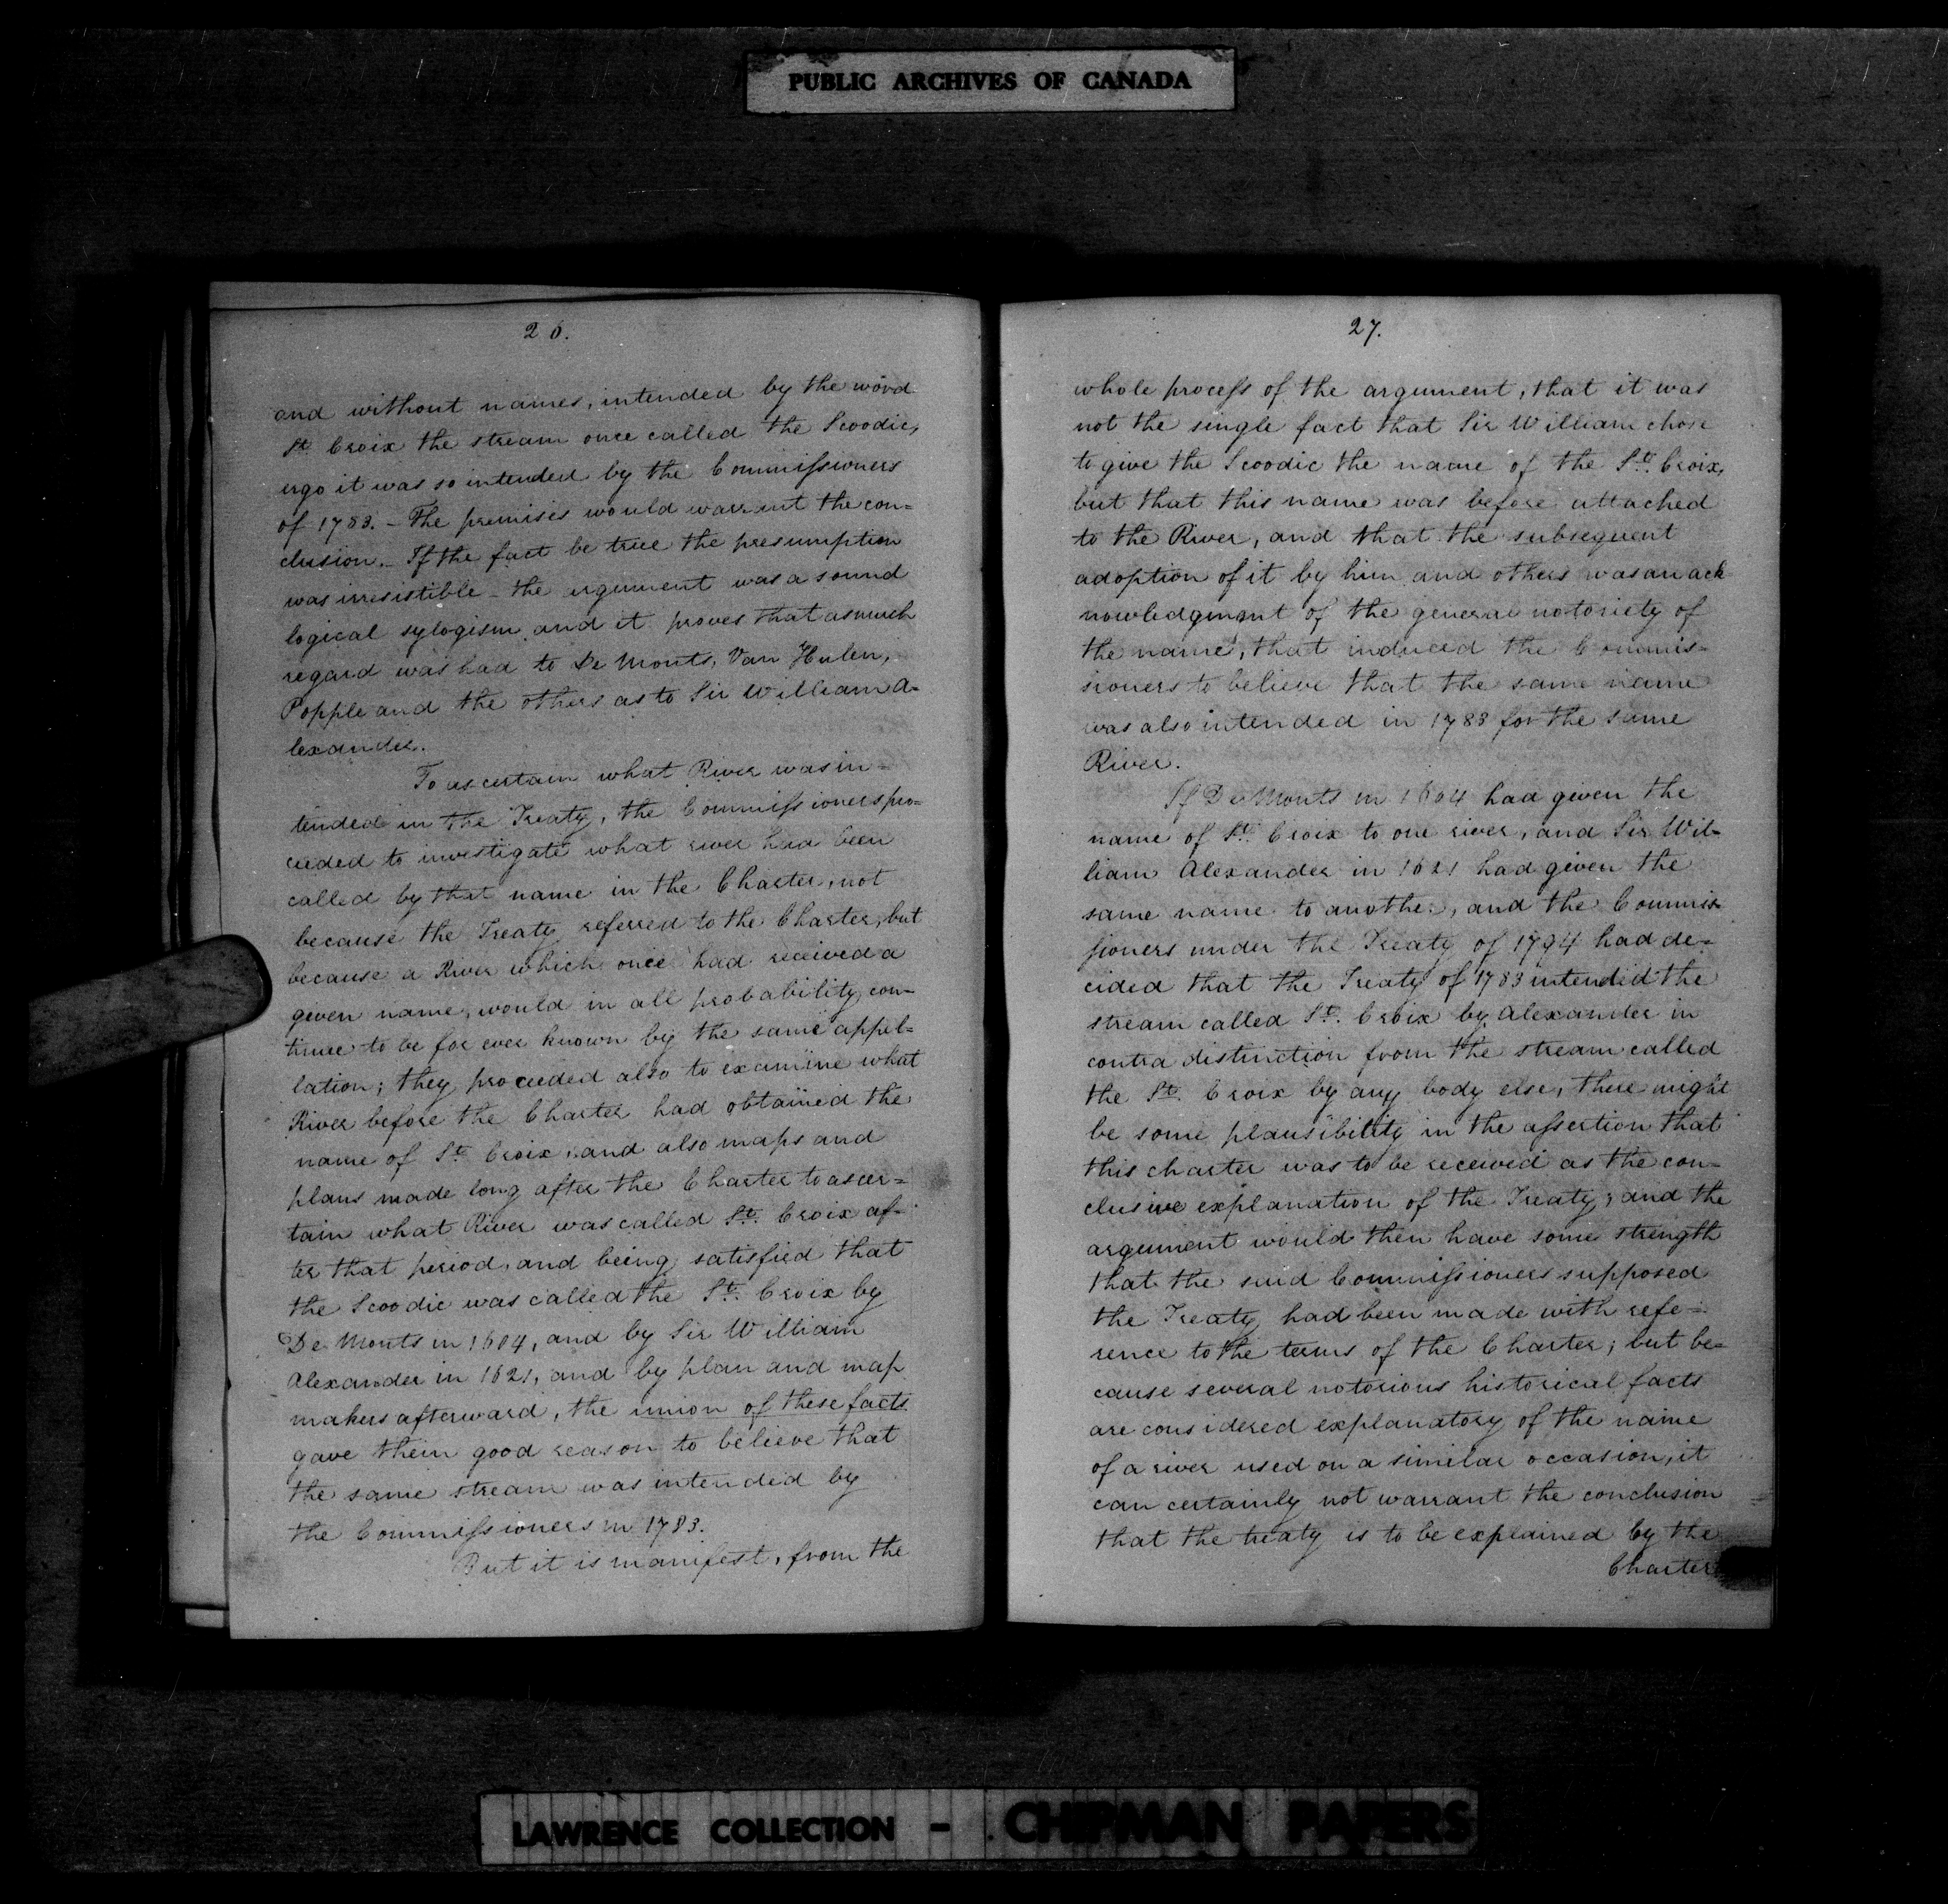 PUBLIC ARCHIVES OF CANADA
26.
and without names, intended by the word
St. Croix the stream once called the Scoodic,
ergo it was so intended by the Commiſsioners
of 1783. – The premises would warrant the con=
clusion. – If the fact be true the presumption
was irresistible – the argument was a sound
logical sylogism and it proves that as much
regard was had to De Monts, Van Hulen,
Popple and the others as to Sir William A-
lexander.
To ascertain what River was in-
tended in the Treaty, the Commiſsioners pro=
ceeded to investigate what river had been
called by that name in the Charter, not
because the Treaty referred to the Charter, but
because a River which once had received a
given name, would in all probability con-
tinue to be for ever known by the same appel=
lation; they proceeded also to examine what
River before the Charter had obtained the
name of St. Croix; and also maps and
plans made long after the Charter to ascer=
tain what River was called St. Croix af-
ter that period, and being satisfied that
the Scoodic was called the St. Croix by
De Monts in 1604, and by Sir William
Alexander in 1621, and by plan and map
makers afterward, the union of these facts
gave them good reason to believe that
the same stream was intended by
the Commiſsioners in 1783.
But it is manifest, from the
27.
whole proceſs of the argument, that it was
not the single fact that Sir William chose
to give the Scoodic the name of the St. Croix,
but that this name was before attached
to the River, and that the subsequent
adoption of it by him and others was an ack
nowledgment of the general notoriety of
the name, that induced the Commis-
sioners to believe that the same name
was also intended in 1783 for the same
River.
If De Monts in 1604 had given the
name of St. Croix to one river, and Sir Wil-
liam Alexander in 1621 had given the
same name to another, and the Commis-
ſioners under the Treaty of 1794 had de-
cided that the Treaty of 1783 intended the
stream called St. Croix by Alexander in
contra distinction from the stream called
the St. Croix by any body else, there might
be some plausibility in the aſsertion that
this charter was to be received as the con-
clusive explanation of the Treaty; and the
argument would then have some strength
that the said Commiſsioners supposed
the Treaty had been made with refe-
rence to the terms of the Charter; but be=
cause several notorious historical facts
are considered explanatory of the name
of a river used on a similar occasion, it
can certainly not warrant the conclusion
that the treaty is to be explained by the
Charter
LAWRENCE COLLECTION - CHIPMAN PAPERS